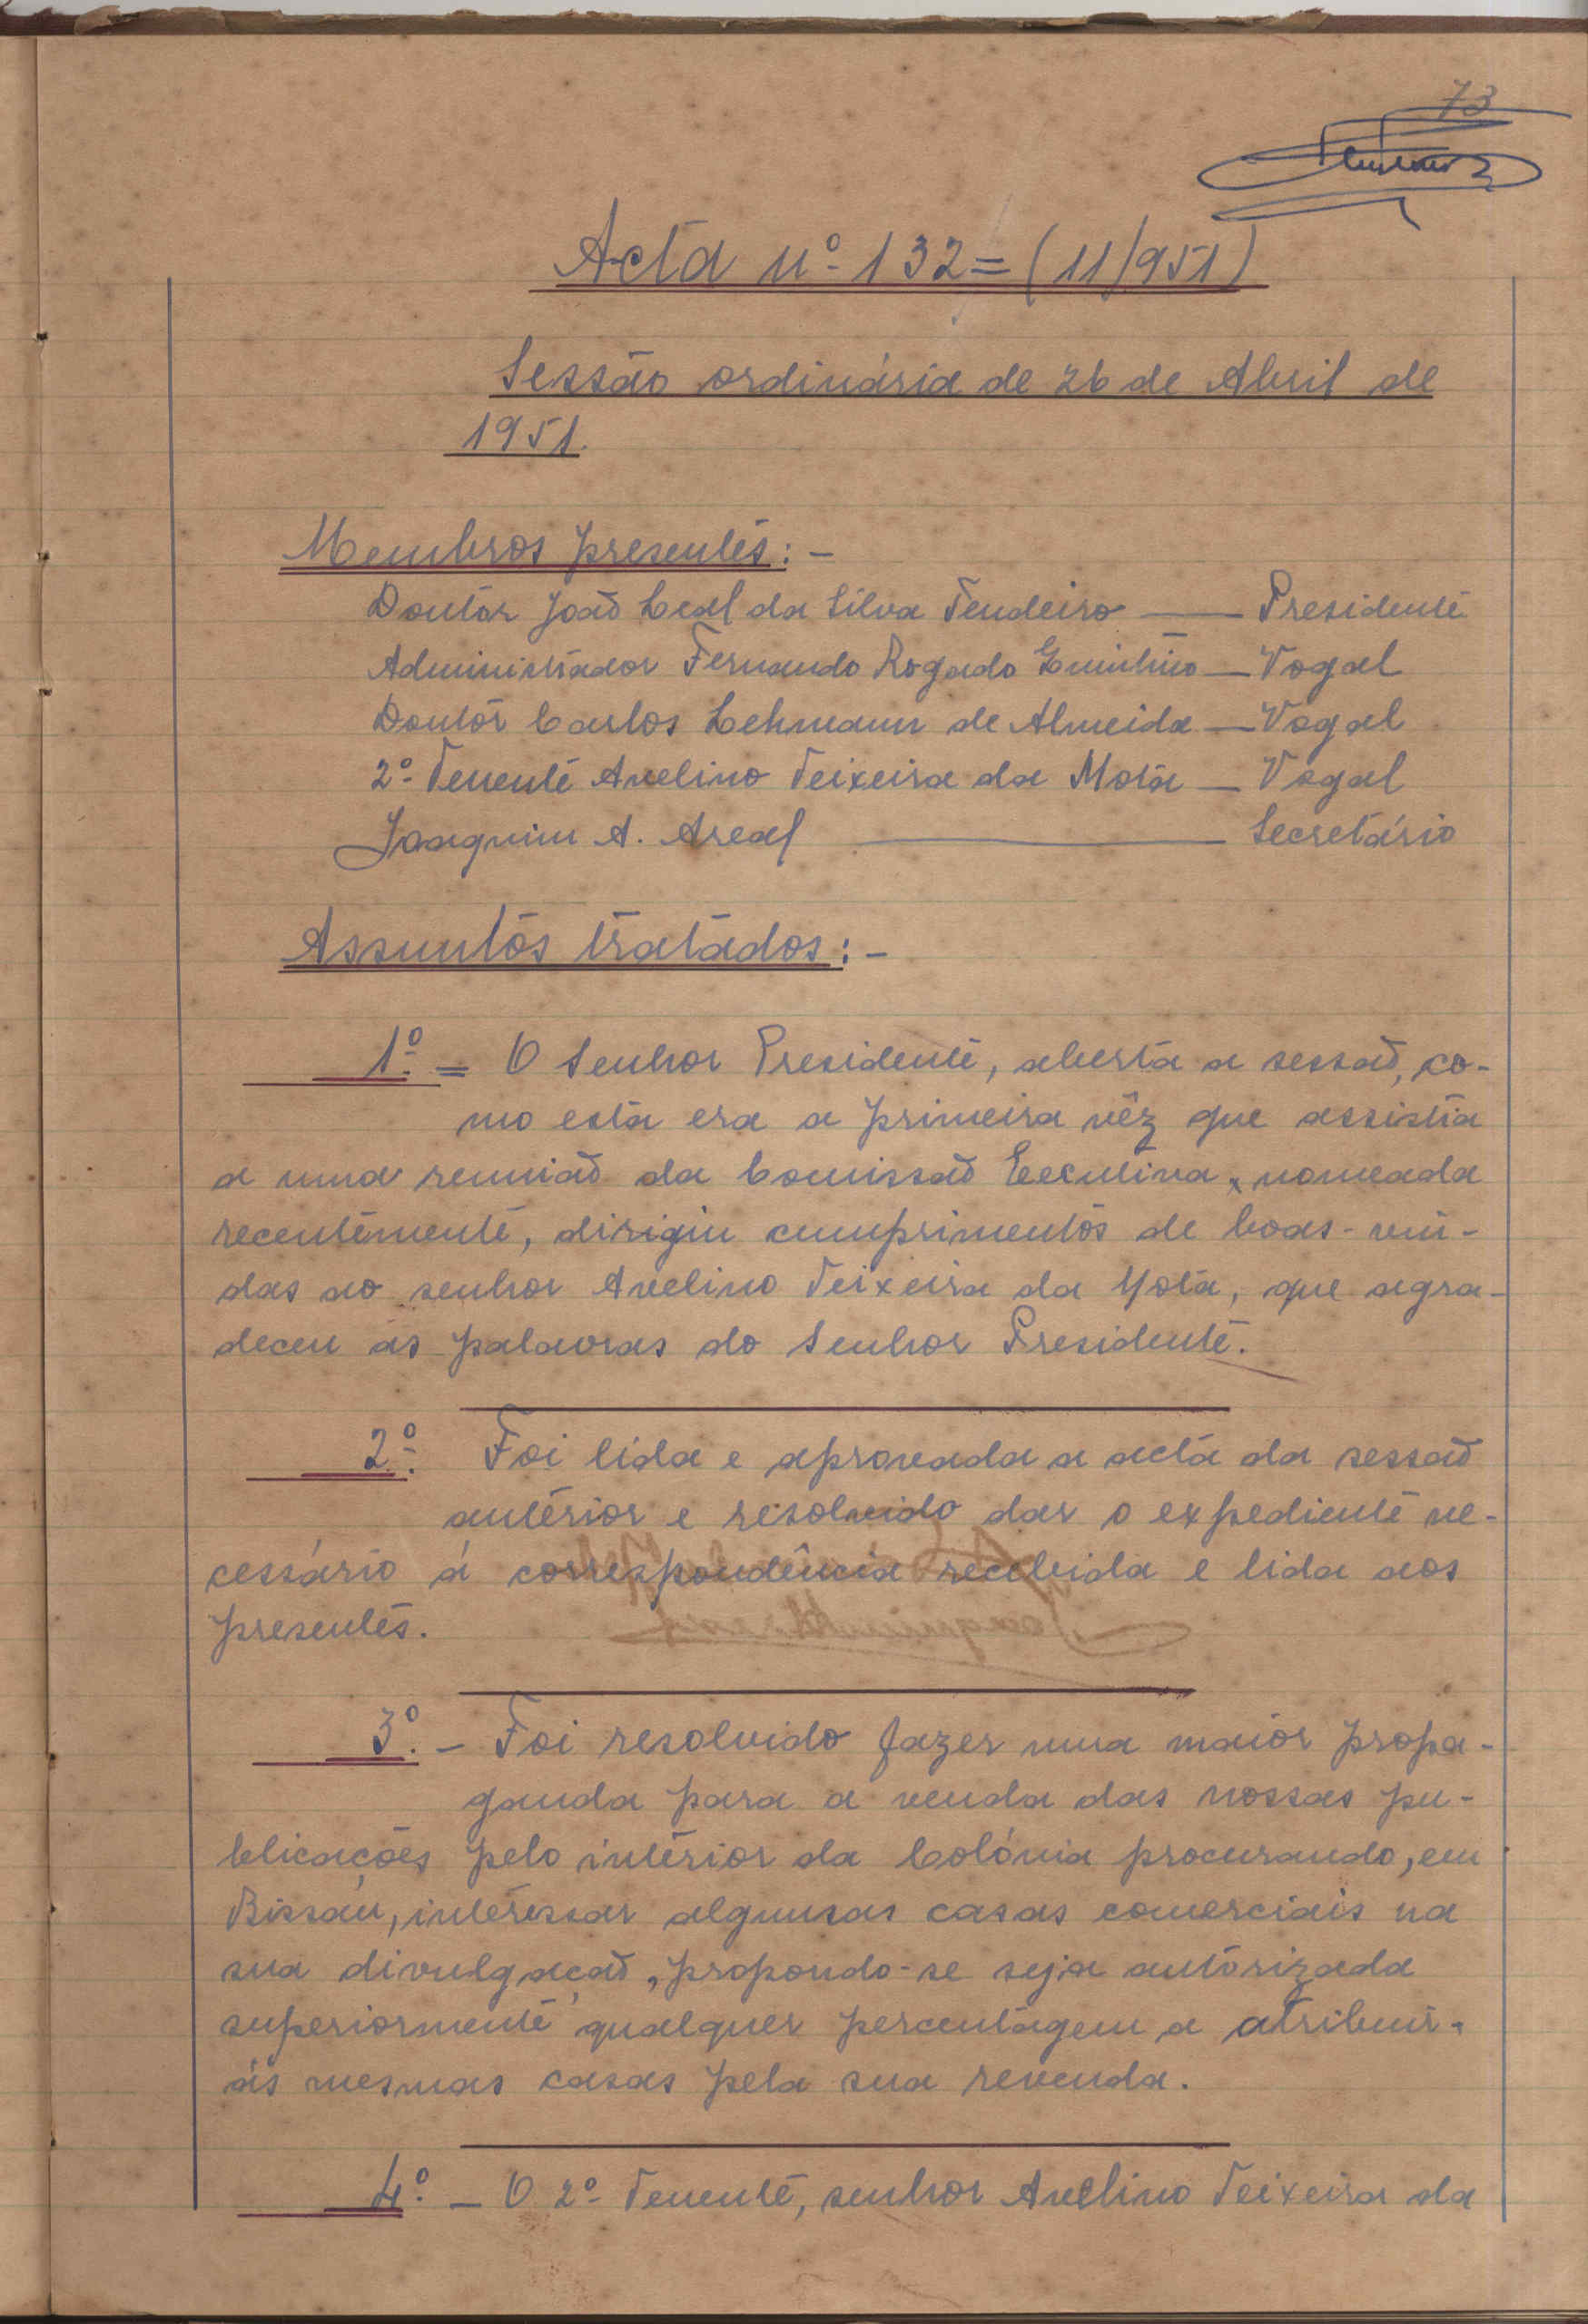 73
Acta nº 132 = (11/951)
Sessão ordinária de 26 de Abril de
1951.
Membros presentes: -
Doutor João Leal da Silva Tendeiro — Presidente
Administrador Fernando Rogado Quintino — Vogal
Doutor Carlos Lehmann de Almeida — Vogal
2º Tenente Avelino Teixeira da Mota — Vogal
Joaquim A. Areal — Secretário
Assuntos tratados: -
1º = O Senhor Presidente, aberta a sessão, co-
mo esta era a primeira vêz que assistia
a uma reunião da Comissão Executiva, nomeada
recentemente, dirigiu cumprimentos de boas-vin-
das ao senhor Avelino Teixeira da Mota, que agra-
deceu as palavras do Senhor Presidente.
2º. Foi lida e aprovada a acta da sessão
anterior e resolvido dar o expediente ne-
cessário á correspondência recebida e lida aos
presentes.
3º. - Foi resolvido fazer uma maior propa-
ganda para a venda das nossas pu-
blicações pelo interior da Colónia procurando, em
Bissau, interessar algumas casas comerciais na
sua divulgação, propondo-se seja autorizada
superiormente qualquer percentagem a atribuir
ás mesmas casas pela sua revenda.
4º. - O 2º Tenente, senhor Avelino Teixeira da